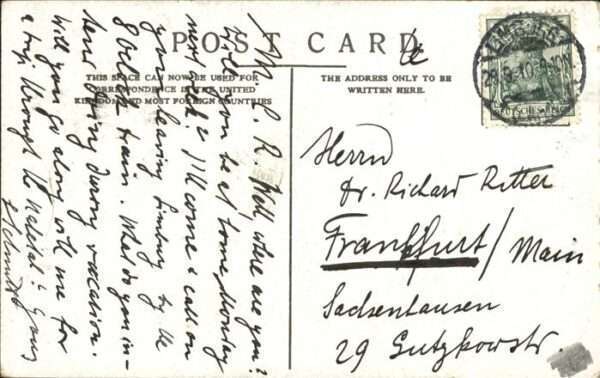 POST CARD
THIS SPACE CAN NOW BE USED FOR
CORRESPONDENCE IN THE UNITED
KINGDOM AND MOST FOREIGN COUNTRIES
THE ADDRESS ONLY TO BE
WRITTEN HERE.
M. L. R. Well where are you?
Will you be at home Monday
next week? I'll come & call on
you leaving Limburg by the
8 o'clock train. What do you in-
tend doing during vacation.
Will you go along with me for
a trip through the Nahetal? Yours
Schmidt
Herrn
Dr. Richard Ritter
Frankfurt / Main
Sachsenhausen
29 Gutzkowstr.